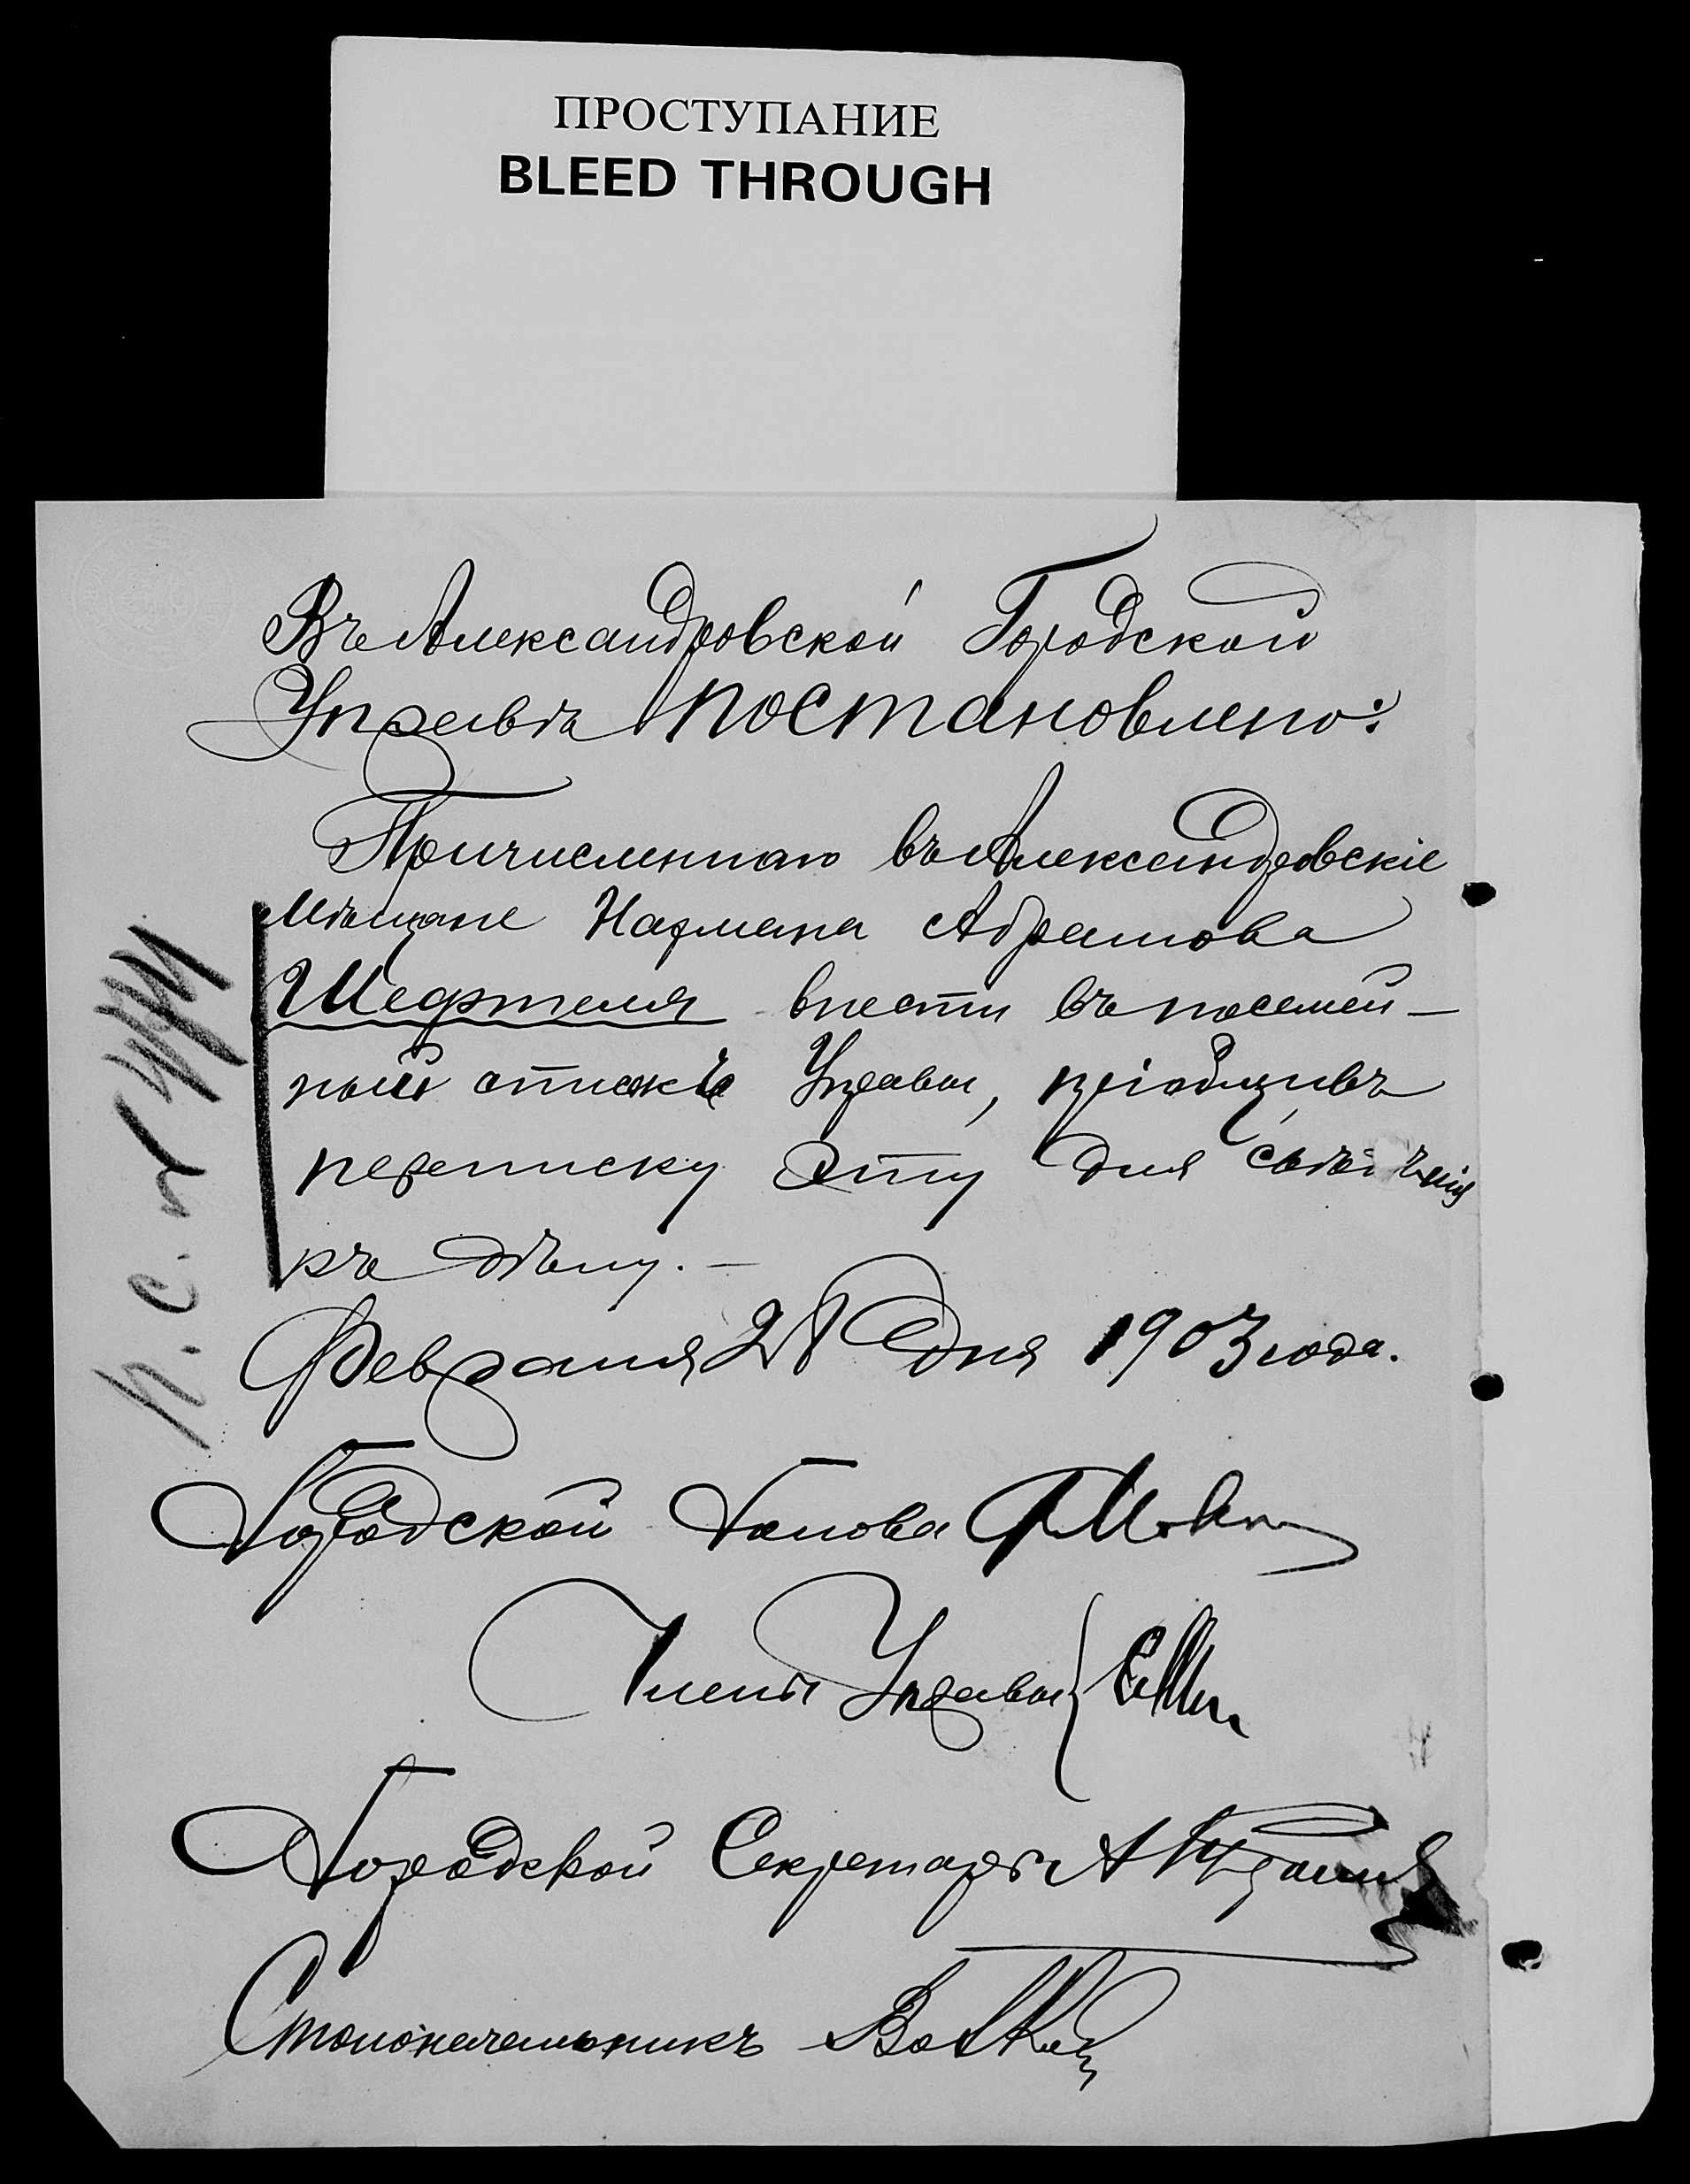 ПРОСТУПАНИЕ
BLEED THROUGH
Въ Александровской Городской
Управѣ постановлено:
Причисленнаго въ Александровскіе
Мѣщане Нахмана Абрамова
Шефтеля внести въ посемей-
ный списокъ Управы, пріобщивъ
переписку эту для
къ дѣлу. —
Февраля 28 дня 1903 года.
Городской Голова
Члены Управы
Городской Секретарь А
Столоначальникъ